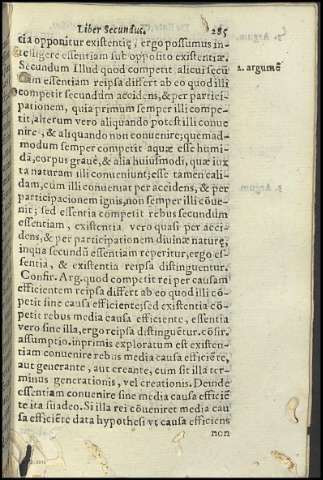 Liber Secundus. 285
tia opponitur existentię, ergo possumus in-
telligere essentiam sub opposito existentiæ.
Secundum Illud quod competit alicui secū
dum essentiam reipsa differt ab eo quod illi
competit secundũm accidens, & per partici-
pationem, quia primum semper illi compe-
tit, alterum vero aliquando potest illi conue
nire, & aliquando non conuenire, quemad-
modum semper competit aquæ esse humi-
da, corpus graue, & alia huiusmodi, quæ iux
ta naturam illi conueniunt; esse tamen cali-
dam, cum illi conueniat per accidens, & per
participacionem ignis, non semper illi cōue-
nit; sed essentia competit rebus secundum
essentiam, existentia vero quasi per acci-
dens, & per participationem diuinæ naturæ,
inqua secundū essentiam reperitur, ergo es-
sentia, & existentia reipsa distinguuntur.
Confir. Arg. quod competit rei per causam
efficientem reipsa differt ab eo quod illi cō-
petit sine causa efficiente, sed existentia cō-
petit rebus media causa efficiente, essentia
vero sine illa, ergo reipsa distinguētur. cōfir.
assumptio. inprimis exploratum est existen-
tiam conuenire rebus media causa efficiēte,
aut generante, aut creante, cum sit illa ter-
minus generationis, vel creationis. Deinde
essentiam conuenire sine media causa efficiē
te ita suadeo. Si illa rei cōueniret media cau
sa efficiēte data hypothesi vt causa efficiens
non
2. argumē